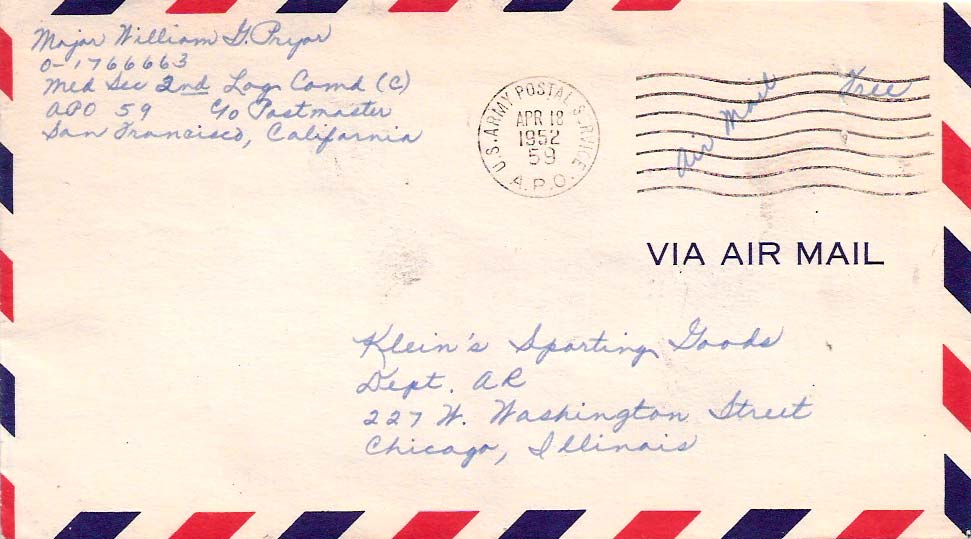 Major William G. Pryor
O-1766663
Med Sec 2nd Log Comd (C)
APO 59 c/o Postmaster
San Francisco, California
U.S. ARMY POSTAL SERVICE
APR 18
1952
59
A.P.O.
Air Mail
Free
VIA AIR MAIL
Klein's Sporting Goods
Dept. AR
227 W. Washington Street
Chicago, Illinois